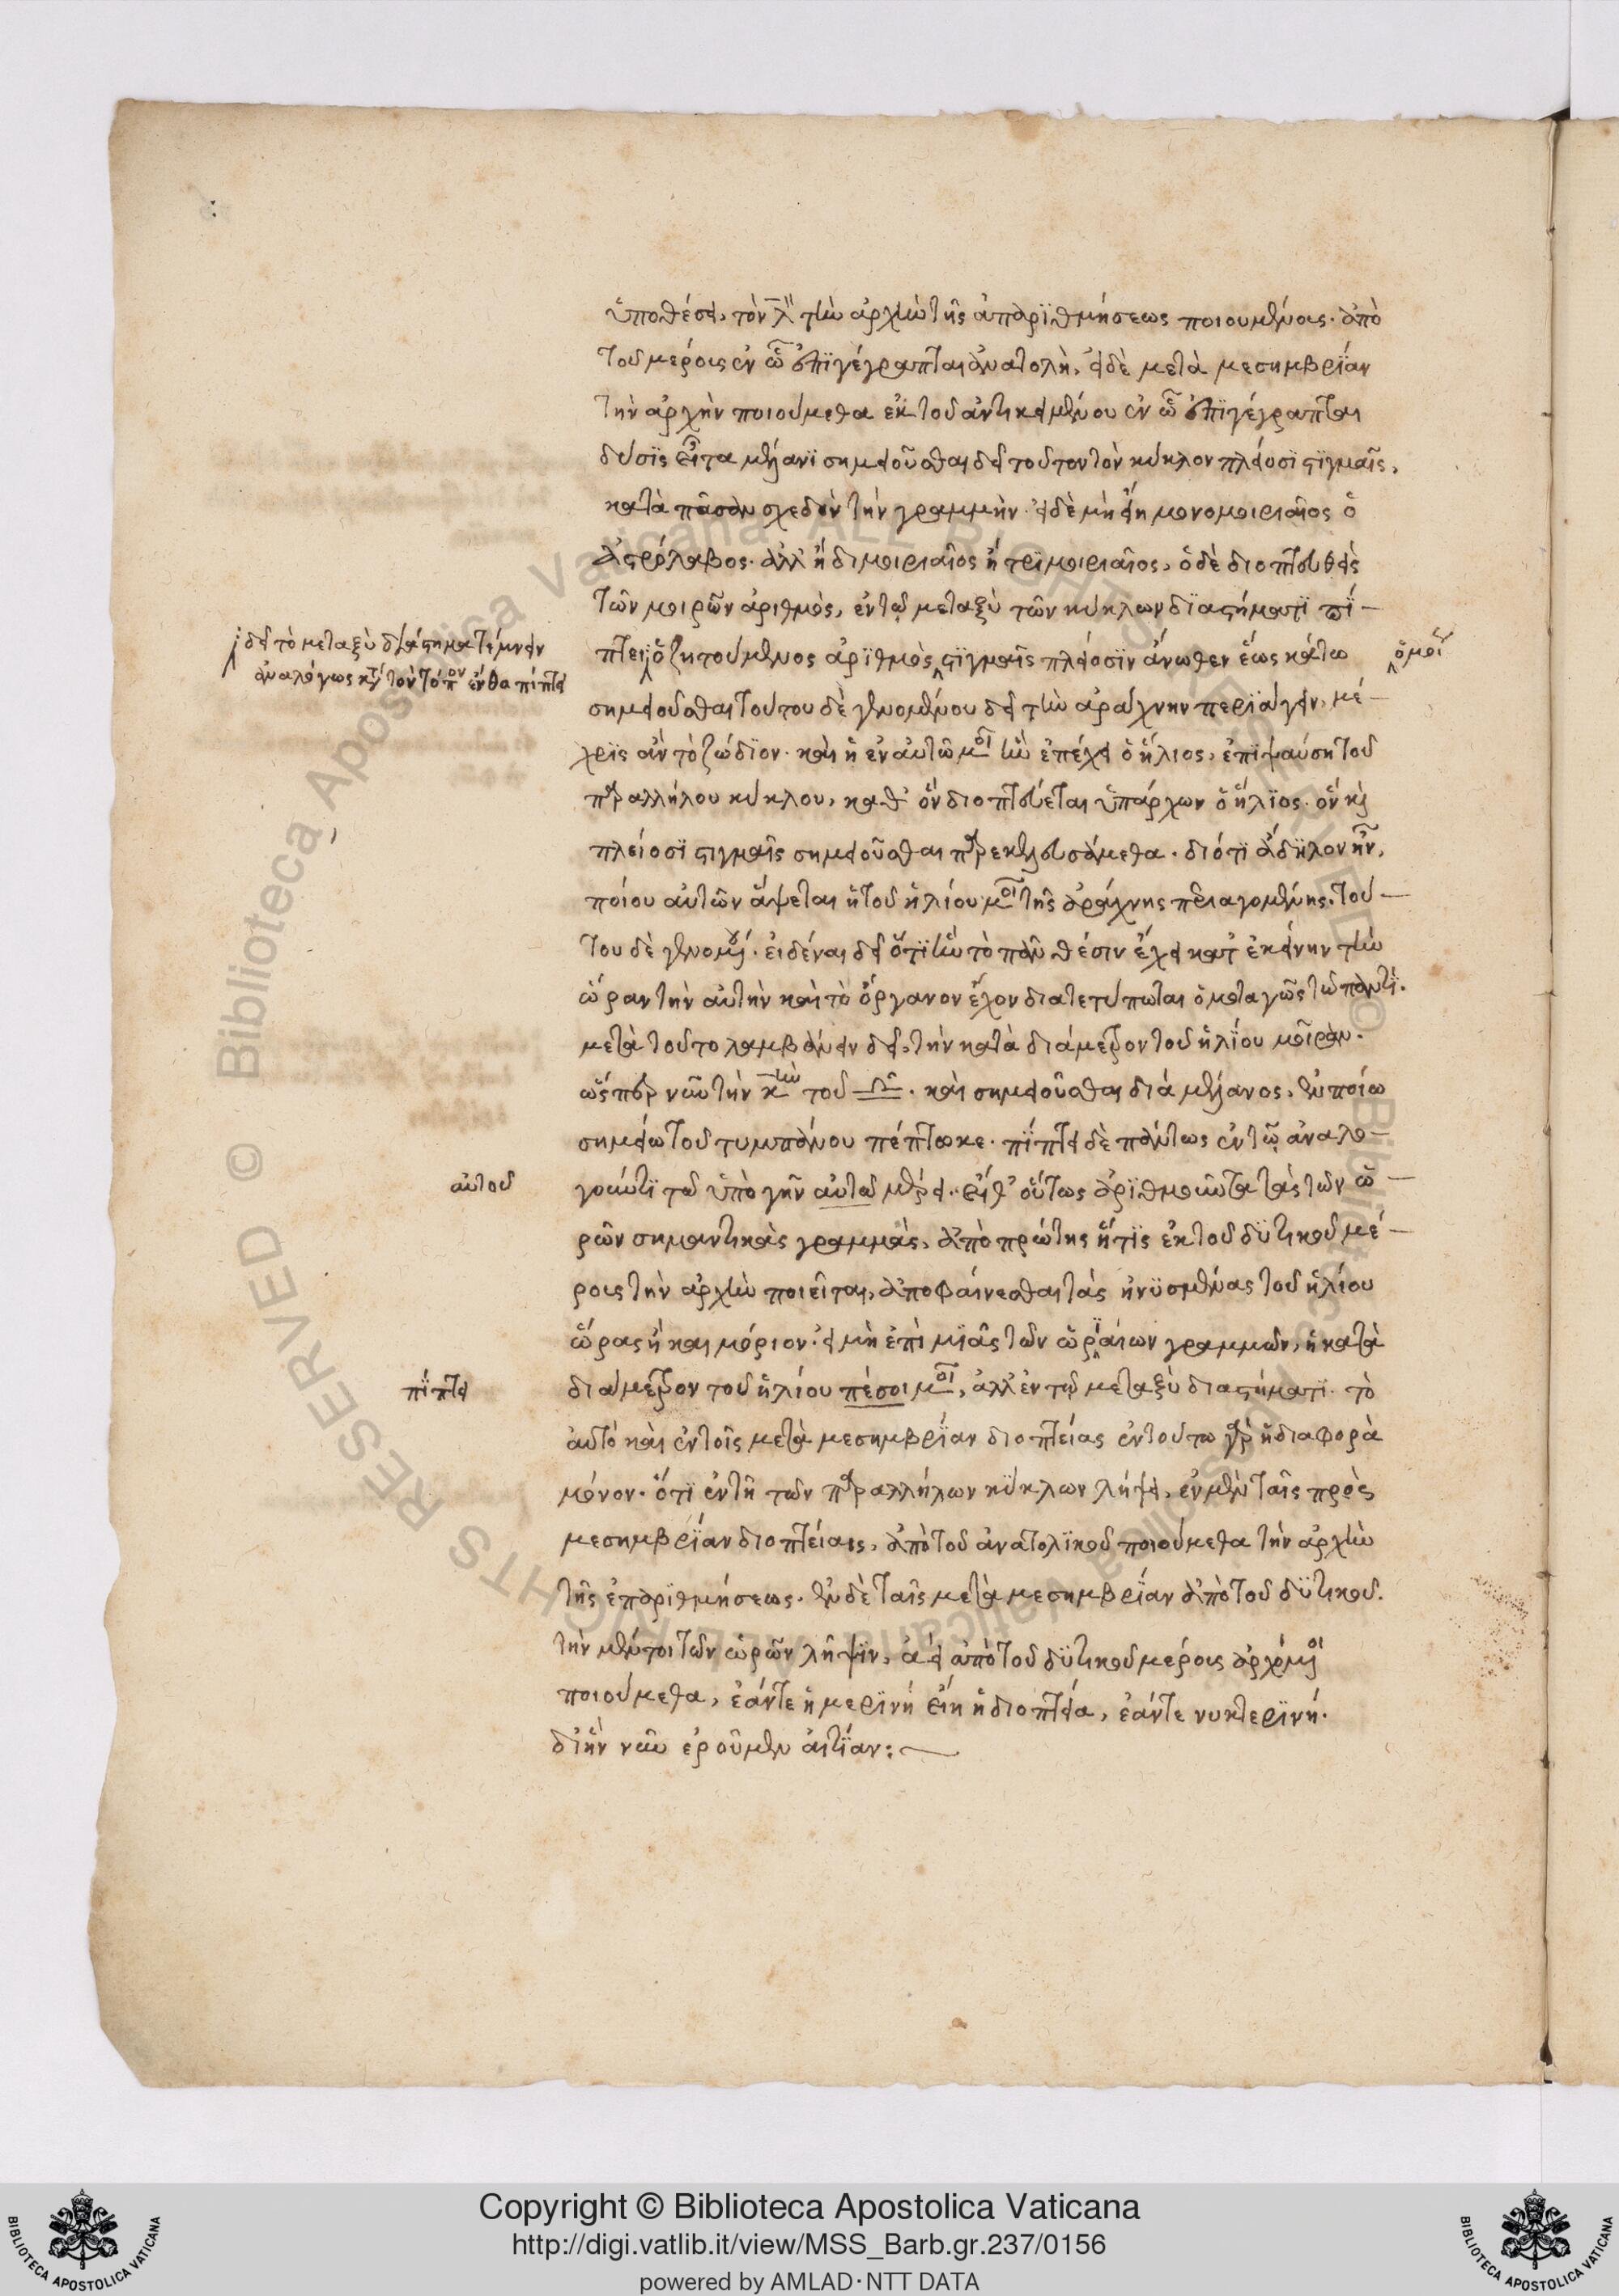 ὑποθέσει, τὸν λ̅ τὴν ἀρχὴν τῆς ἀπαριθμήσεως ποιουμένοις. ἀπὸ
τοῦ μέρους ἐν ᾧ ἐπιγέγραπται ἀνατολὴ, εἰ δὲ μετὰ μεσημβρίαν
τὴν ἀρχὴν ποιούμεθα ἐκ τοῦ ἀντικειμένου ἐν ᾧ ἐπιγέγραπται
δύσις εἶτα μέλανι σημειοῦσθαι δεῖ τοῦτον τὸν κύκλον πλείοσι στιγμαῖς,
κατὰ πᾶσαν σχεδὸν τὴν γραμμὴν. εἰ δὲ μὴ εἴη μονομοιριαῖος ὁ
ἀστρόλαβος. ἀλλ' ἢ διμοιριαῖος ἢ τριμοιριαῖος, ὁ δὲ διοπτευθεὶς
τῶν μοιρῶν ἀριθμὸς, ἐν τῷ μεταξὺ τῶν κύκλων διαστήματι πί-
δεῖ τὸ μεταξὺ διάστημα τέμνειν
ἀναλόγως κατὰ τὸν τόπον ἔνθα πίπτει
πτει ὁ ζητούμενος ἀριθμὸς, στιγμαῖς πλείοσιν ἄνωθεν ἕως κάτω
ὁμοί
σημειοῦσθαι τούτου δὲ γενομένου δεῖ τὴν ἀράχνην περιάγειν, μέ-
χρις ἂν τὸ ζώδιον. καὶ ἡ ἐν αὐτῷ μοῖ ἣν ἐπέχει ὁ ἥλιος, ἐπιψαύση τοῦ
παραλλήλου κύκλου, καθ' ὃν διοπτεύεται ὑπάρχων ὁ ἥλιος. ὃν καὶ
πλείοσι στιγμαῖς σημειοῦσθαι παρεκελευσάμεθα. διότι ἄδηλον ἦν,
ποίου αὐτῶν ἅψεται ἡ τοῦ ἡλίου μοῖ τῆς ἀράχνης περιαγομένης. τού-
του δὲ γενομέ. εἰδέναι δεῖ ὅτι ἣν τὸ πᾶν θέσιν ἔχει κατ' ἐκείνην τὴν
ὥραν τὴν αὐτὴν καὶ τὸ ὄργανον ἔχον διατετύπωται ὁμοταγῶς τῷ παντί.
μετὰ τοῦτο λαμβάνειν δεῖ, τὴν κατὰ διάμετρον τοῦ ἡλίου μοῖραν.
ὥσπερ νῦν τὴν κ̅ὴν τοῦ ♎. καὶ σημειοῦσθαι διὰ μέλανος, ἐν ποίω
σημείω τοῦ τυμπάνου πέπτωκε. πίπτει δὲ πάντως ἐν τῷ ἀναλο-
αὐτοῦ
γοῦντι τῷ ὑπὸ γῆν αὐτῷ μέρει. εἶθ' οὕτως ἀριθμοῦντα τὰς τῶν ὡ-
ρῶν σημαντικὰς γραμμὰς, ἀπὸ πρώτης ἥτις ἐκ τοῦ δυτικοῦ μέ-
ρους τὴν ἀρχὴν ποιεῖται, ἀποφαίνεσθαι τὰς ἠνυσμένας τοῦ ἡλίου
ὥρας ἢ καὶ μόριον. εἰ μὴ ἐπὶ μιᾶς τῶν ὡριαίων γραμμῶν, ἡ κατὰ
πίπτει
διάμετρον τοῦ ἡλίου πέσοι μοῖ, ἀλλ' ἐν τῷ μεταξὺ διαστήματι. τὸ
αὐτὸ καὶ ἐν τοῖς μετὰ μεσημβρίαν διοπτείας ἐν τούτω γὰρ ἡ διαφορὰ
μόνον. ὅτι ἐν τῆ τῶν παραλλήλων κύκλων λήψει, ἐν μὲν ταῖς πρὸς
μεσημβρίαν διοπτείαις, ἀπὸ τοῦ ἀνατολικοῦ ποιούμεθα τὴν ἀρχὴν
τῆς ἐπαριθμήσεως. ἐν δὲ ταῖς μετὰ μεσημβρίαν ἀπὸ τοῦ δυτικοῦ.
τὴν μέντοι τῶν ὡρῶν λῆψιν, ἀεὶ ἀπὸ τοῦ δυτικοῦ μέρους ἀρχόμεοι
ποιούμεθα, ἐάντε ἡμερινή εἴη ἡ διοπτεία, ἐάντε νυκτερινή.
δι' ἣν νῦν ἐροῦμεν αἰτίαν:
Copyright © Biblioteca Apostolica Vaticana
http://digi.vatlib.it/view/MSS_Barb.gr.237/0156
powered by AMLAD·NTT DATA